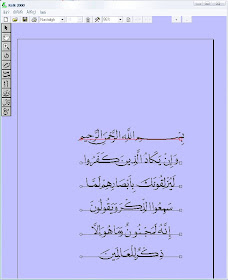 Kelk 2000
بسم الله الرحمن الرحيم
وَإِن يَكَادُ الَّذِينَ كَفَرُوا
لَيُزْلِقُونَكَ بِأَبْصَارِهِمْ لَمَّا
سَمِعُوا الذِّكْرَ وَيَقُولُونَ
إِنَّهُ لَمَجْنُونٌ وَمَا هُوَ إِلَّا
ذِكْرٌ لِّلْعَالَمِينَ